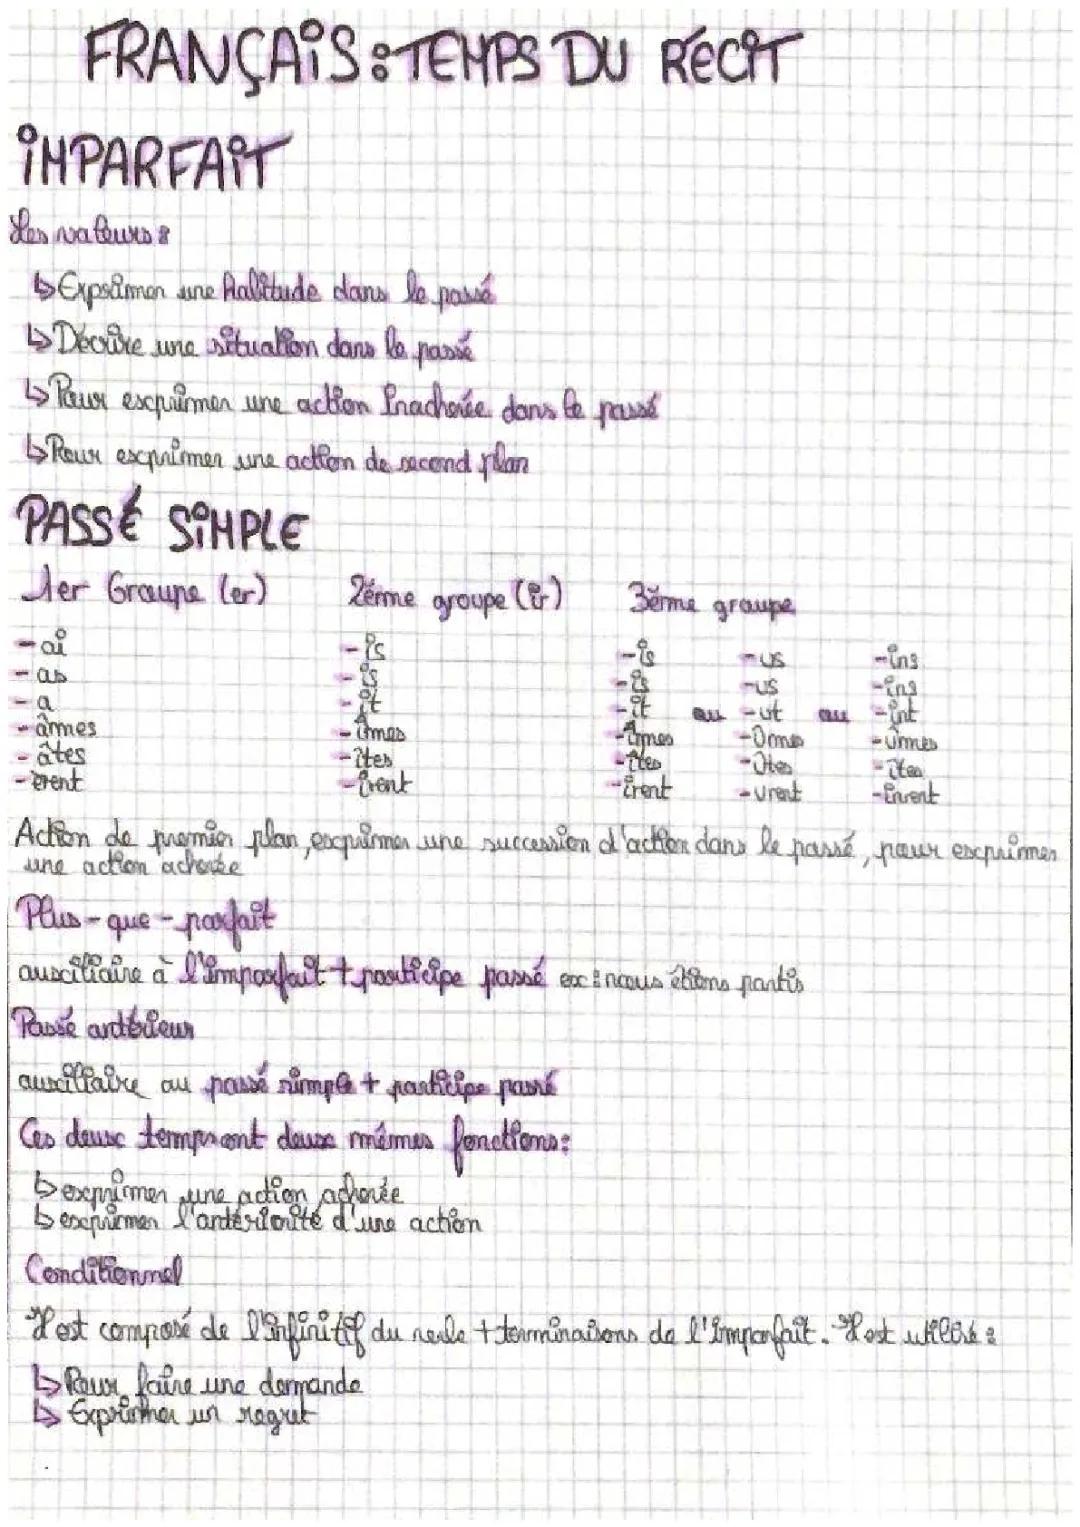 FRANÇAIS : TEMPS DU RÉCIT
IMPARFAIT
Les valeurs :
↳ Exprimer une habitude dans le passé
↳ Décrire une situation dans le passé
↳ Pour exprimer une action inachevée dans le passé
↳ Pour exprimer une action de second plan
PASSÉ SIMPLE
1er Groupe (er) 2ème groupe (ir) 3ème groupe
- ai - is - is - us - ins
- as - is - is - us - ins
- a - it - it ou - ut ou - int
- âmes - îmes - îmes - ûmes - înmes
- âtes - îtes - îtes - ûtes - îtes
- èrent - irent - irent - urent - inrent
Action de premier plan, exprimer une succession d'action dans le passé, pour exprimer
une action achevée
Plus-que-parfait
auxiliaire à l'imparfait + participe passé ex : nous étions partis
Passé antérieur
auxiliaire au passé simple + participe passé
Ces deux temps ont deux mêmes fonctions :
↳ exprimer une action achevée
↳ exprimer l'antériorité d'une action
Conditionnel
Il est composé de l'infinitif du verbe + terminaisons de l'imparfait. Il est utilisé :
↳ Pour faire une demande
↳ Exprimer un regret